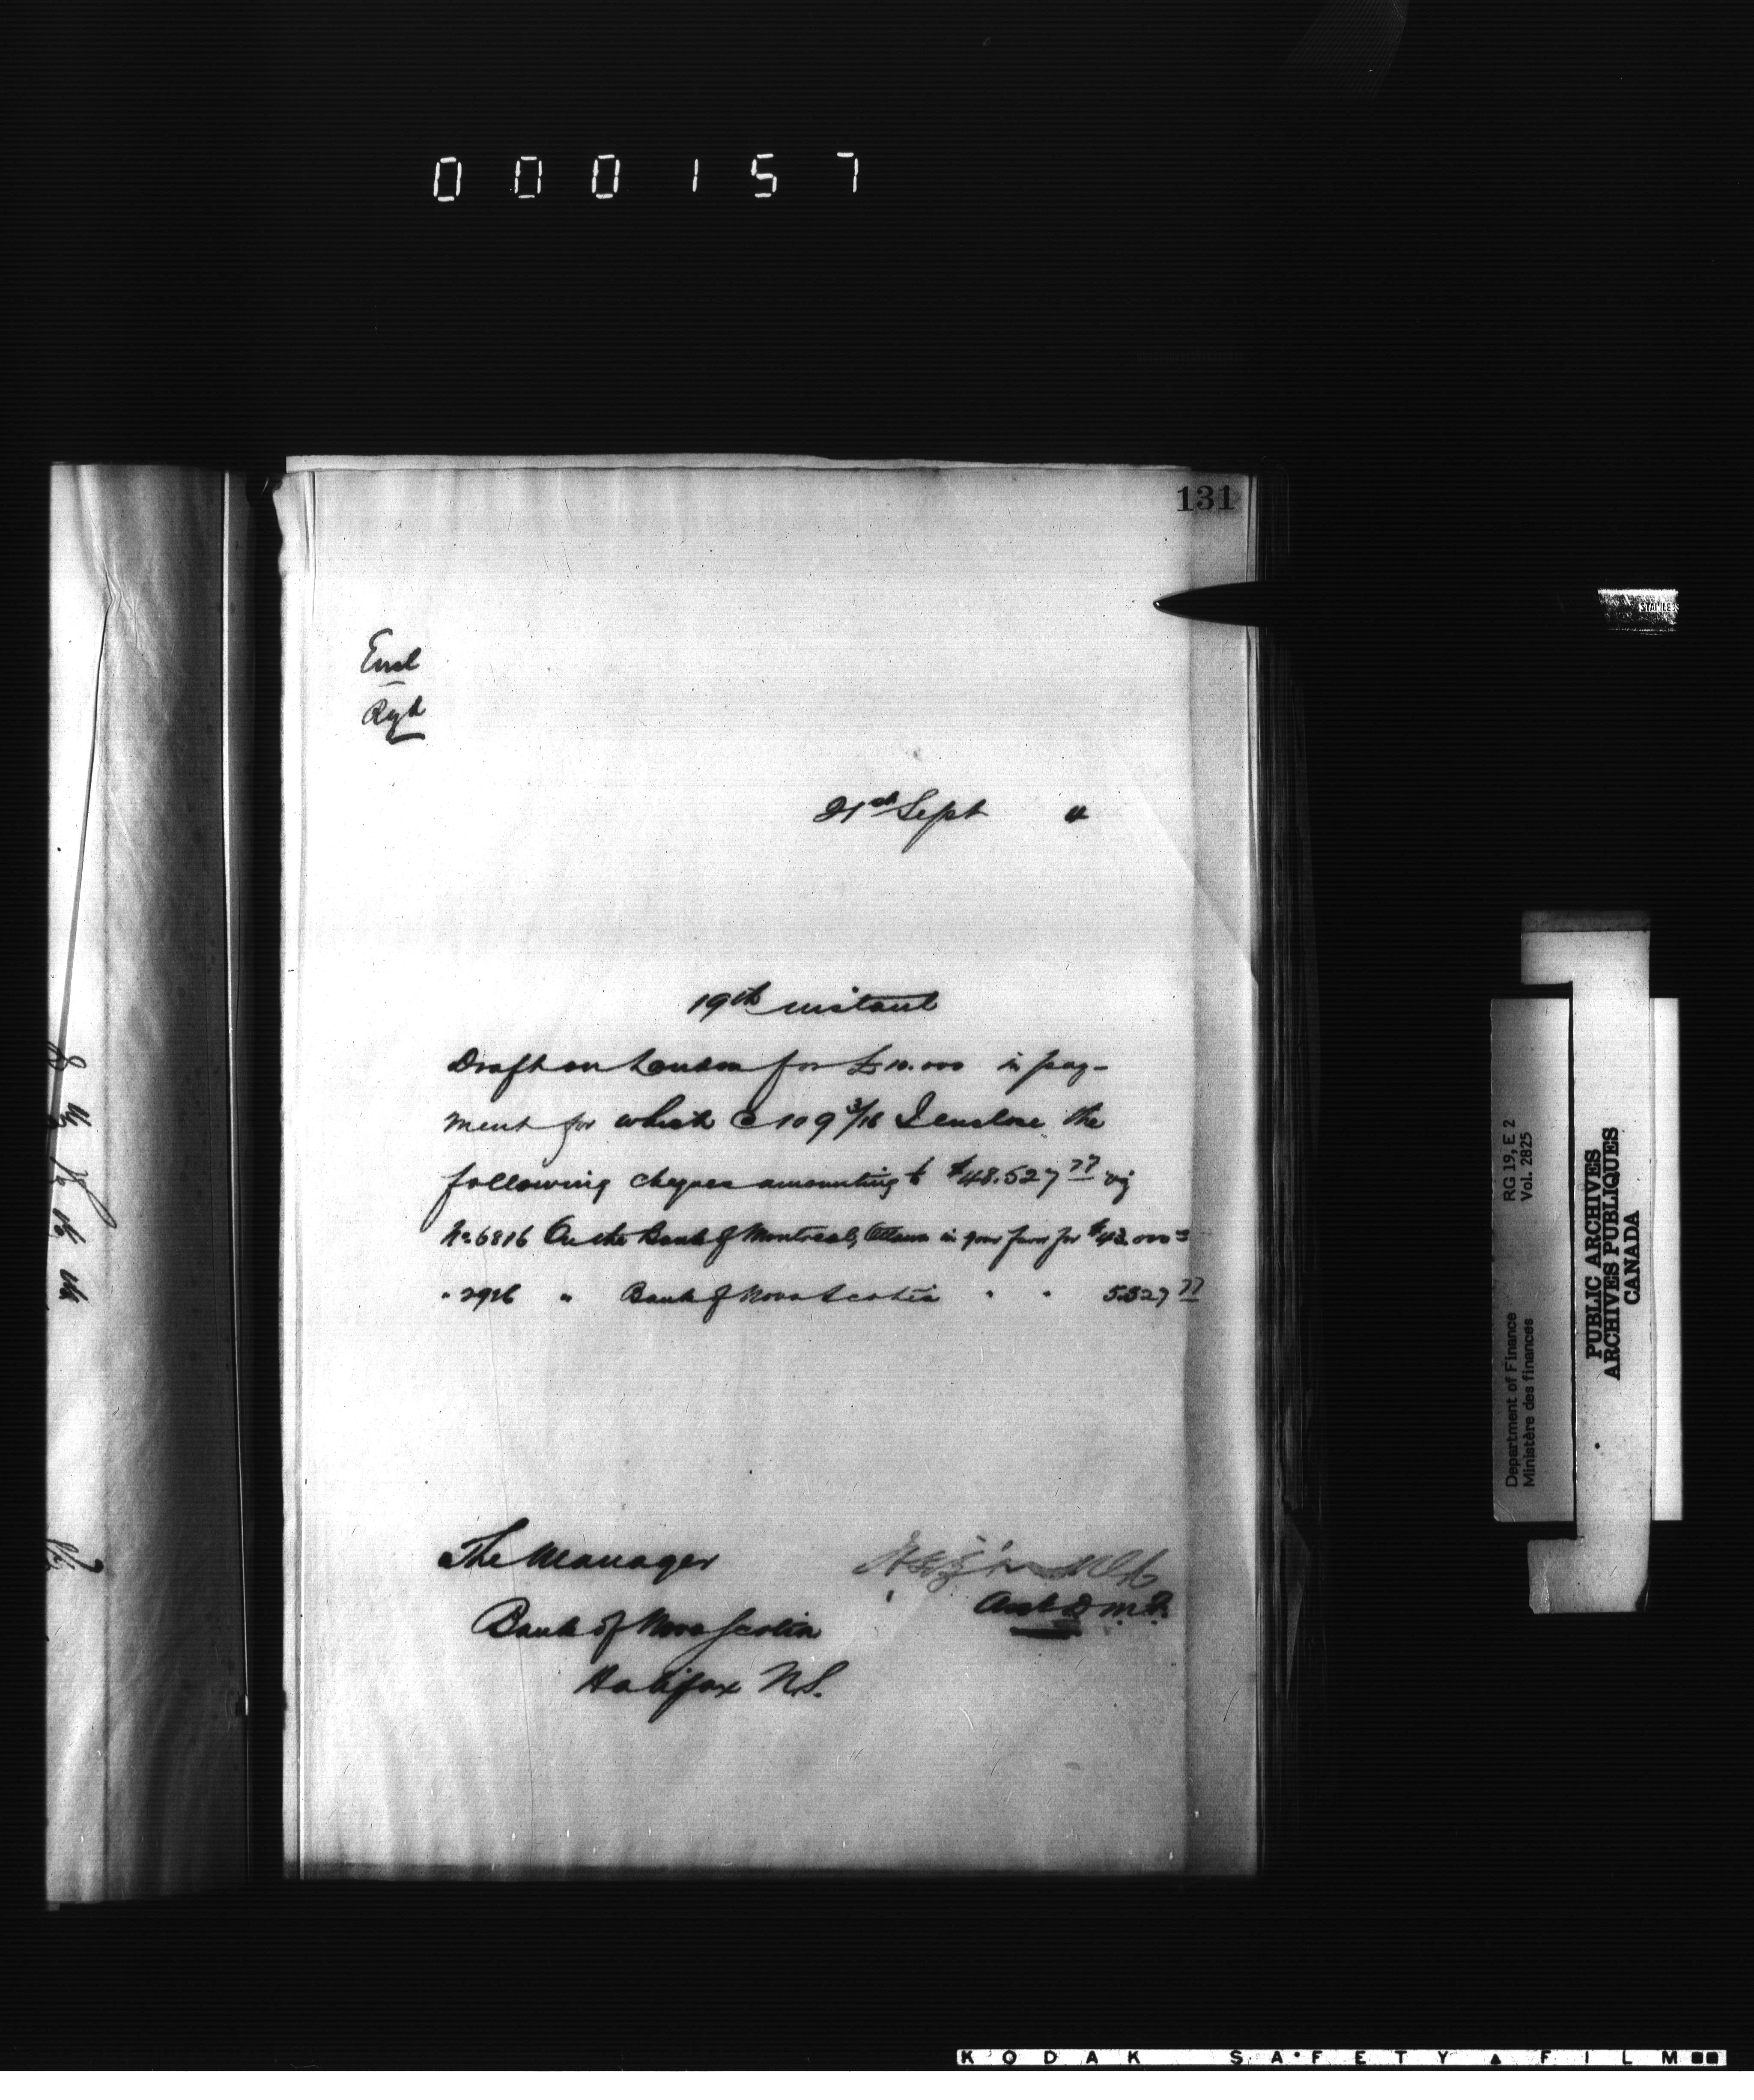 000157
131
Encl
Regd
21st Sept
19th instant
Draft on London for £10.000 in pay-
ment for which @ 109 3/16 I enclose the
following cheques amounting to $48.527 77 viz
No 6816 On the Bank of Montreal, Ottawa in your favor for $43.000
" 2926 " Bank of Nova Scotia " " 5.527 77
The Manager
Bank of Nova Scotia
Halifax N.S.
Asst D.M.F.
STAINLESS
RG 19, E 2
Vol. 2825
Department of Finance
Ministère des finances
PUBLIC ARCHIVES
ARCHIVES PUBLIQUES
CANADA
KODAK SAFETY FILM